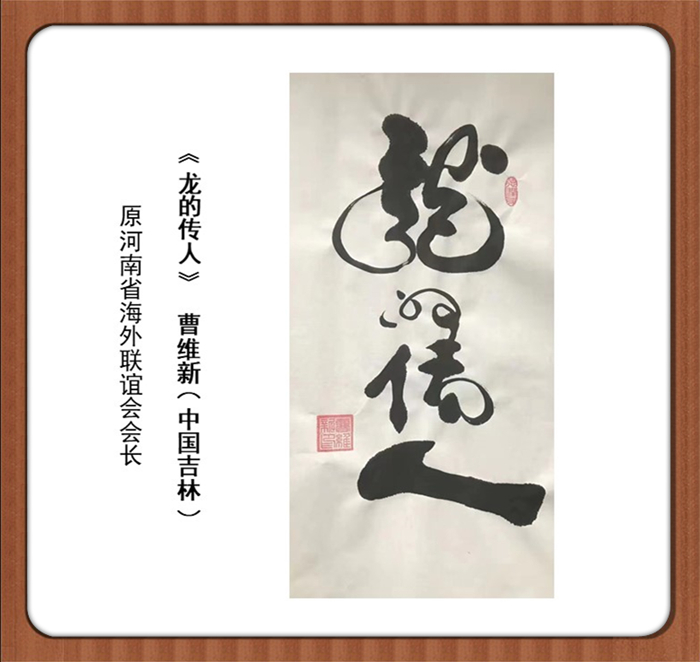 龍
的
傳
人
《龙的传人》 曹维新(中国吉林)
原河南省海外联谊会会长